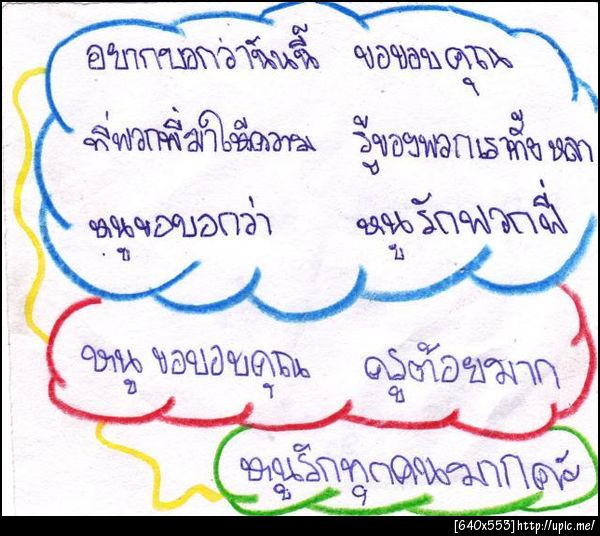 อยากบอกว่าวันนี้ ขอขอบคุณ
ที่พวกพี่มาให้ความ รู้ของพวกเราทั้ง หลา
หนูขอบอกว่า หนูรักพวกพี่
หนู ขอบอบคุณ ครูต้อยมาก
หนูรักทุกคนมากค่ะ
[640x553]http://upic.me/